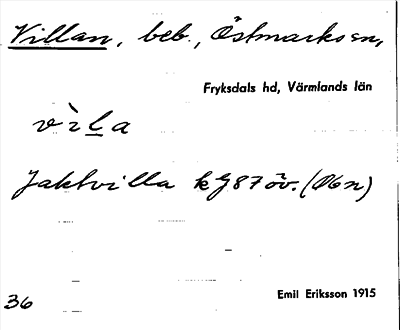 Villan, beb., Östmarks sn,
Fryksdals hd, Värmlands län
vìl̲a
Jaktvilla k J 87 öv. (Ö6n)
36
Emil Eriksson 1915